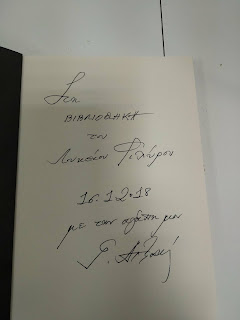 Στη
ΒΙΒΛΙΟΘΗΚΗ
του
Λυκείου
16.12.18
με την αγάπη μου